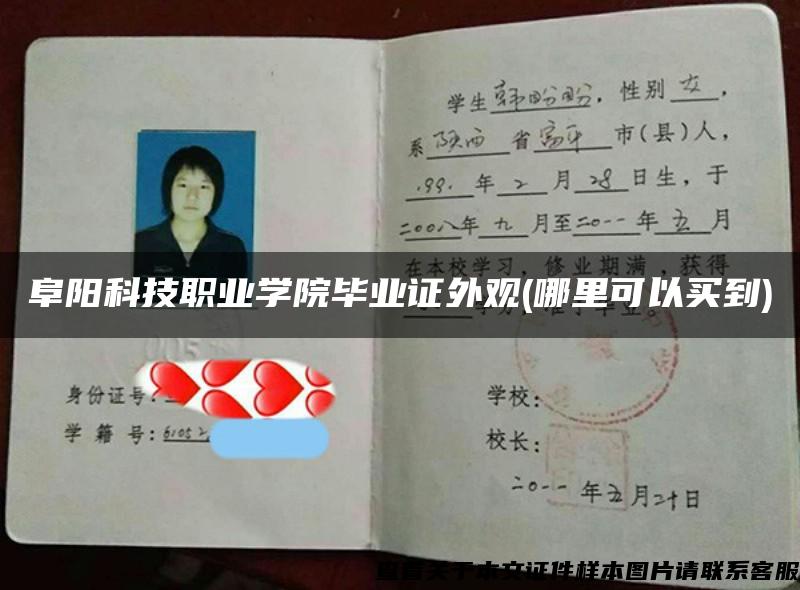 学生韩盼盼，性别女，
系陕西省富平市(县)人，
1991年2月28日生，于
二00八年九月至二0一一年五月
在本校学习，修业期满，获得
阜阳科技职业学院毕业证外观(哪里可以买到)
身份证号：
学籍号：61052
学校：
校长：
二0一一年五月二十日
查看关于本文证件样本图片请联系客服